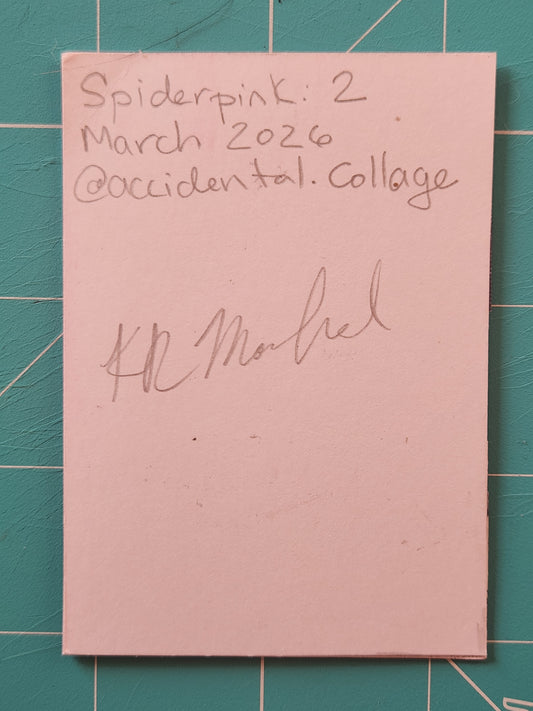 Spiderpink: 2
March 2026
@accidental.collage
KR